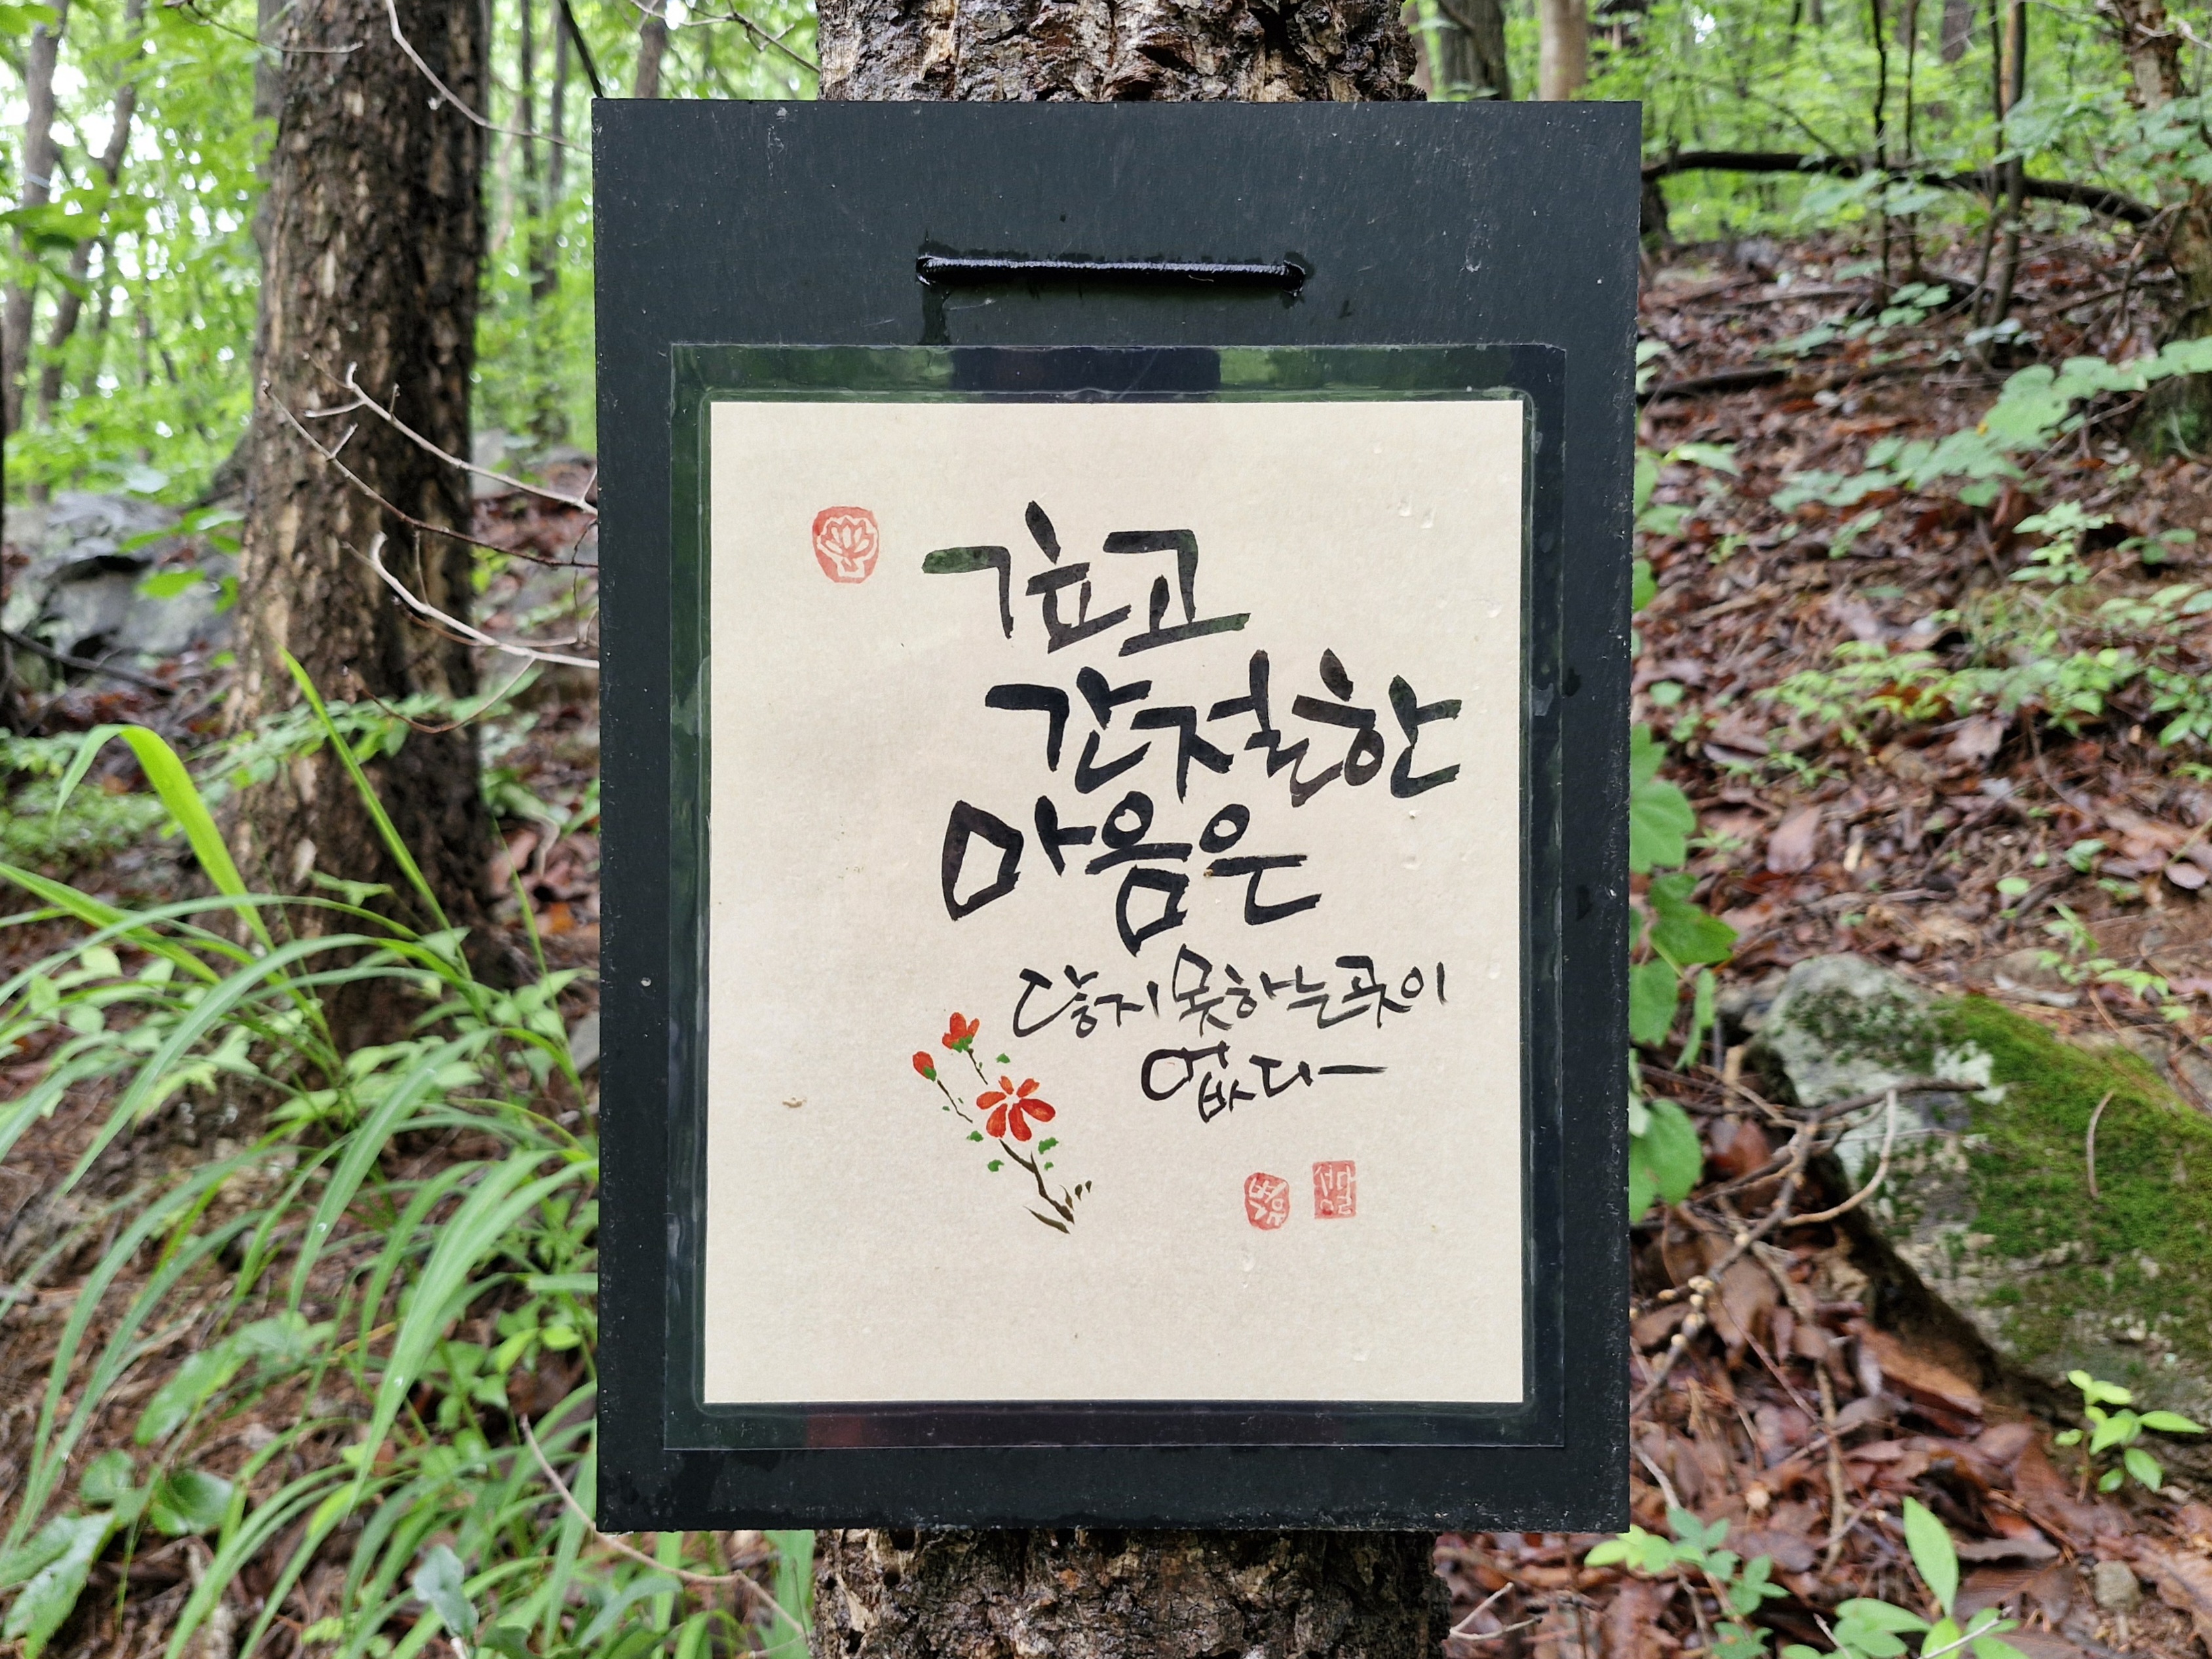 깊고
간절한
마음은
닿지 못하는 곳이
없다